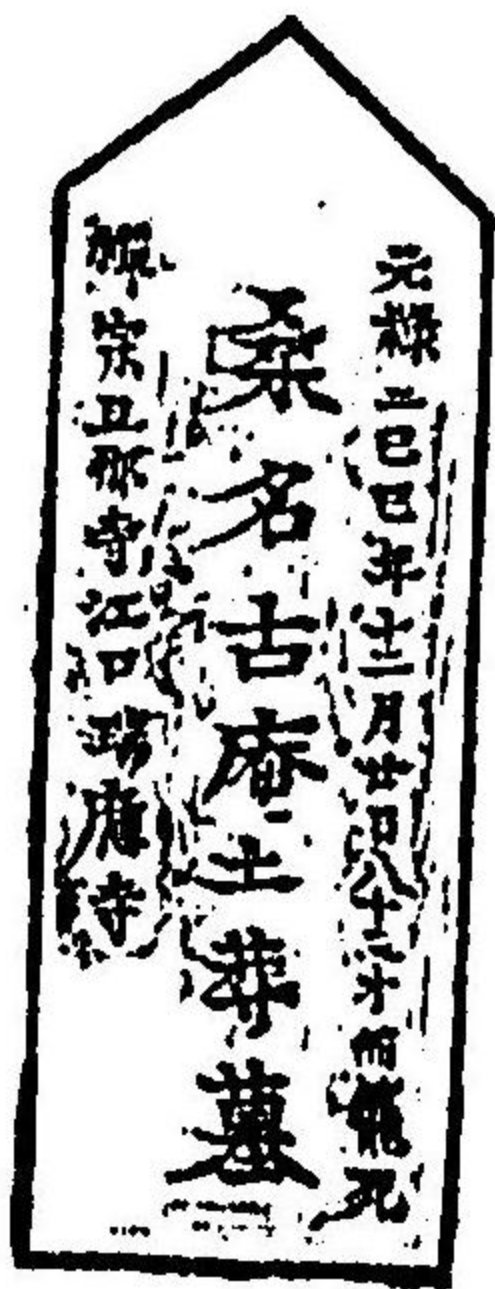 元禄二己巳年十二月廿日八十二才而籠死
桑名古庵土葬墓
禅宗旦那寺江口瑞應寺